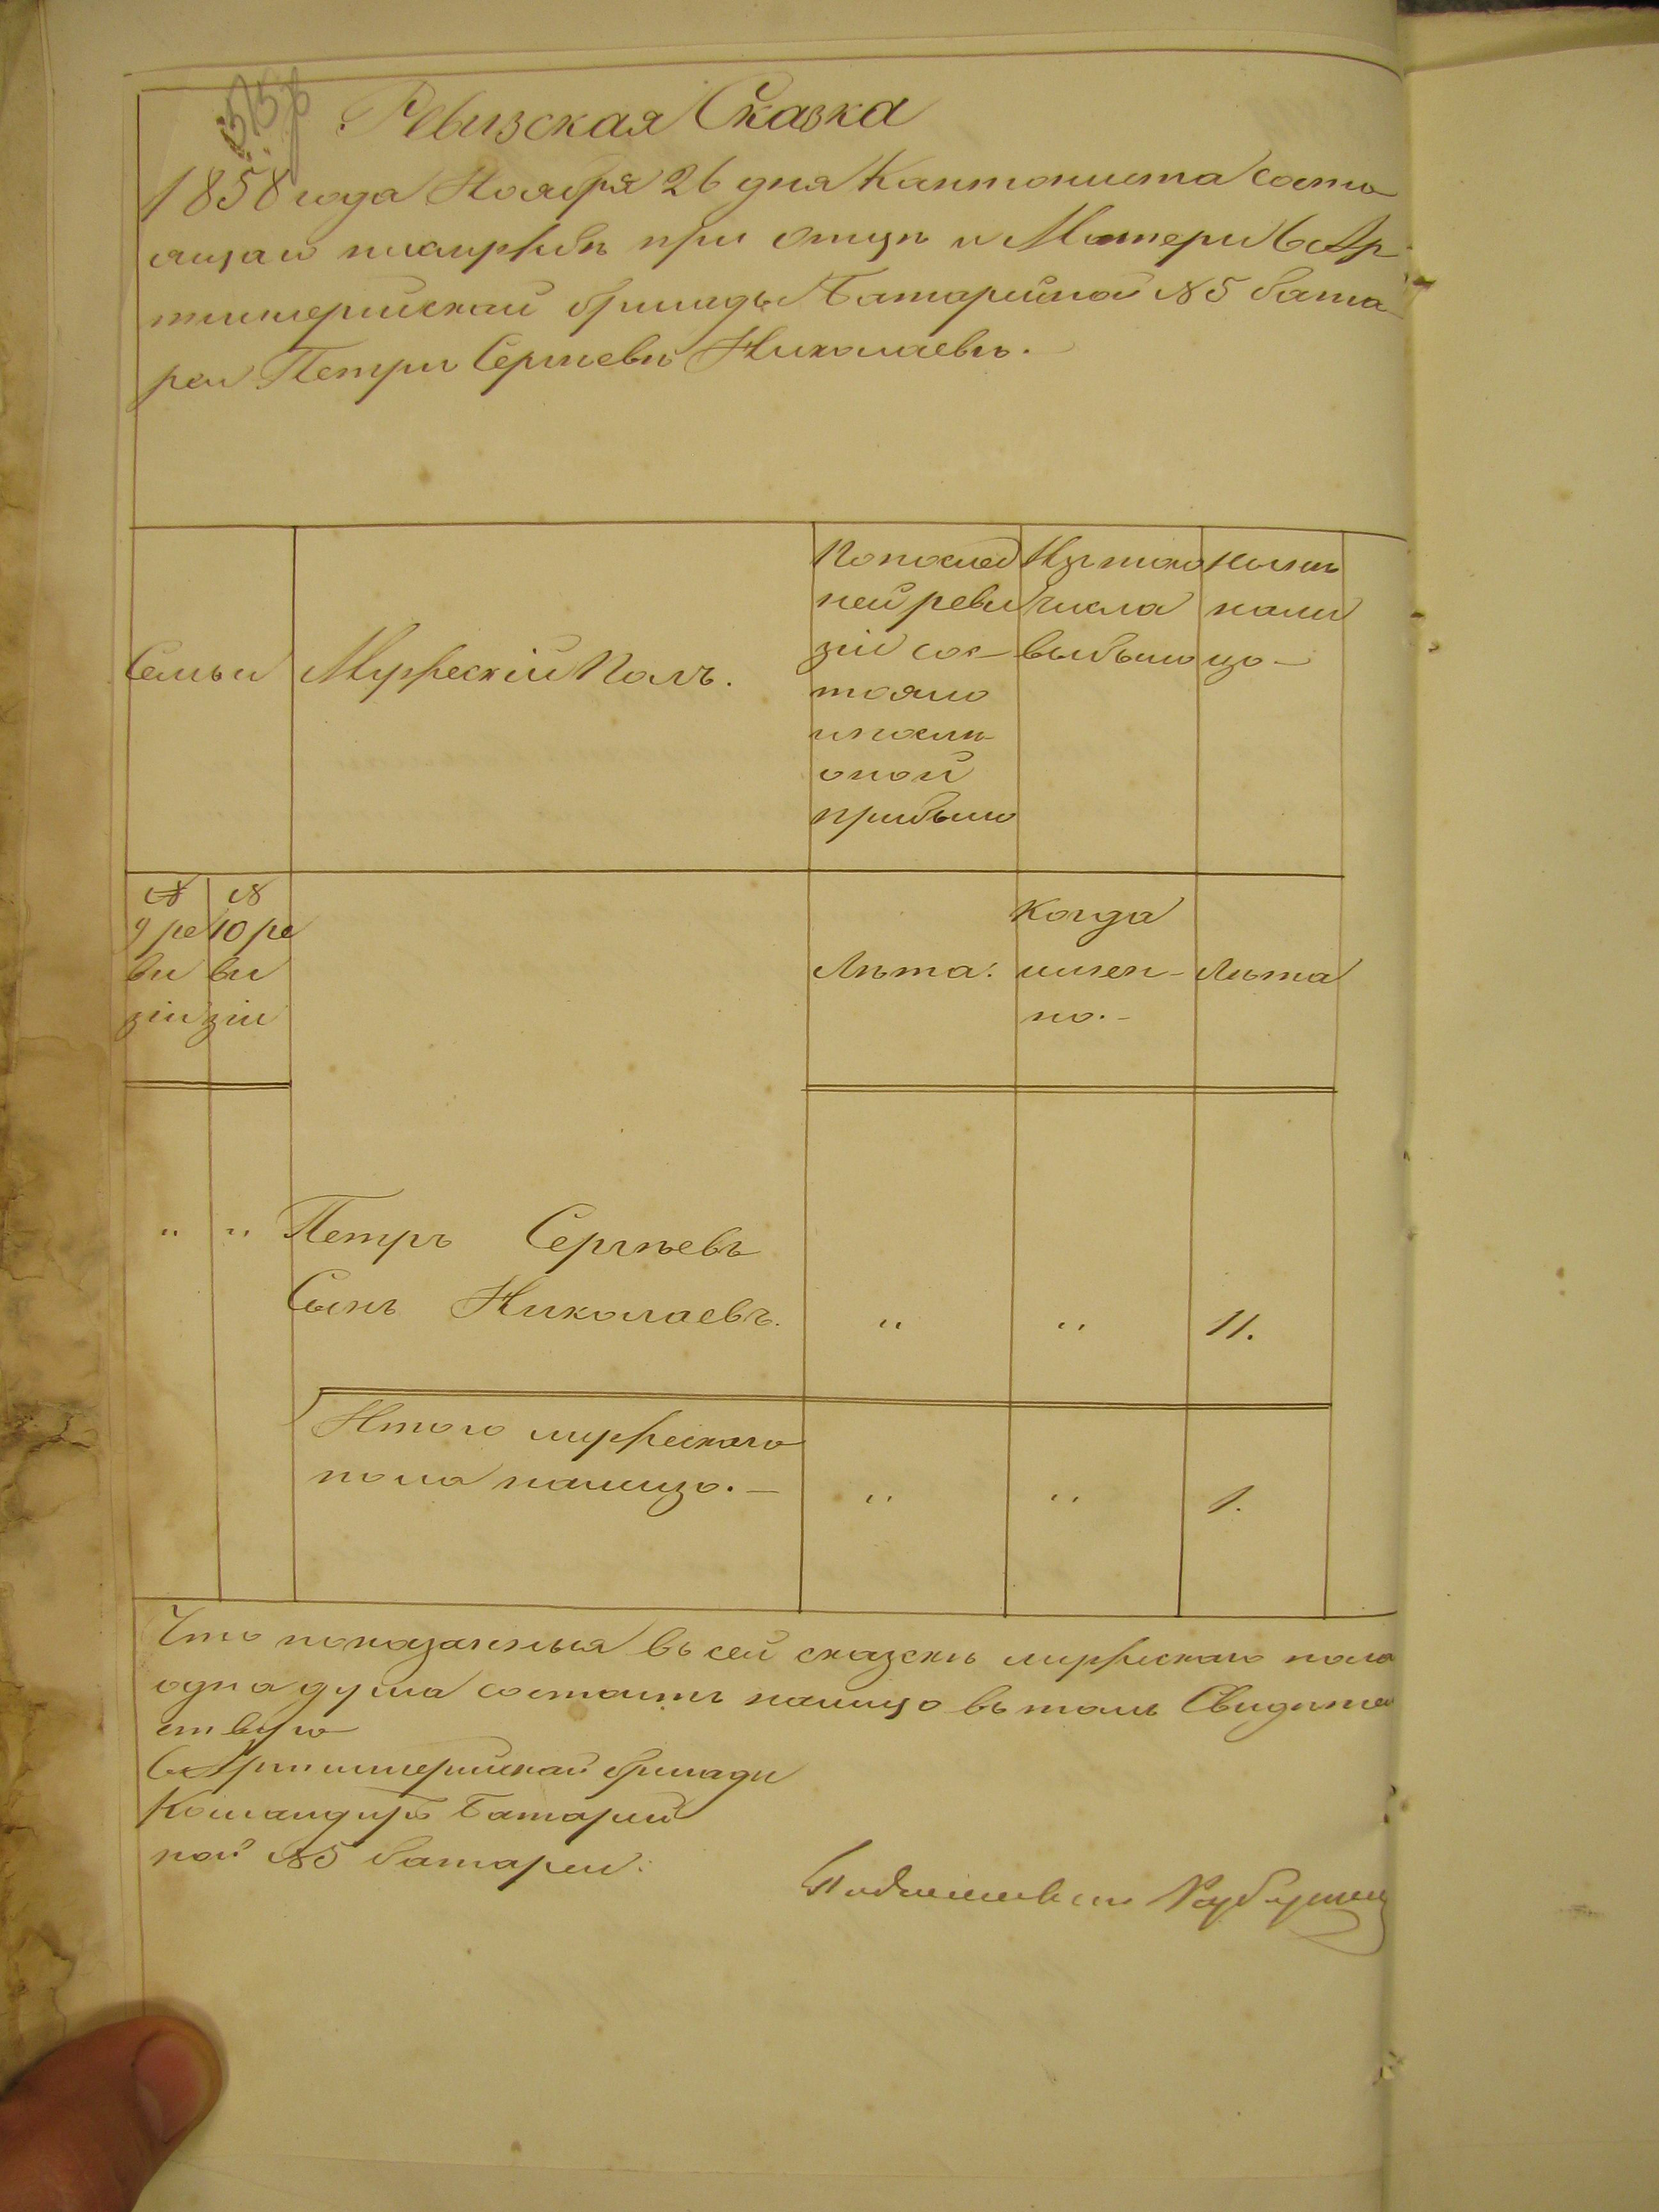 Ревизская Сказка
1858 года Ноября 26 дня Кантониста состо
ящаго при Отцѣ и Матери 6 Ар
тилерийской бригады Батарейной №5 бата
реи Петрѣ Сергѣевѣ Николаевѣ.
Семьи
Мужескій Полъ.
По послед
ней реви
зіи сос-
тояло
и послѣ
оной
прибыло
Изъ того
числа
выбыло
Нынѣ
нали
цо-
№
9 ре
ви
зіи
№
10 ре
ви
зіи
Лѣта.
Когда
имен-
но.-
Лѣта
" " Петръ Сергѣевъ
Сынъ Николаевъ. " " 11.
Итого мужескаго
пола налицо.- " " 1.
Что показанныя въ сей сказкѣ мужескаго пола
одна душа состоитъ налицо въ томъ Свидѣтел
ствую
6 Артилерийской бригады
Командиръ Батарей
ной №5 батареи.